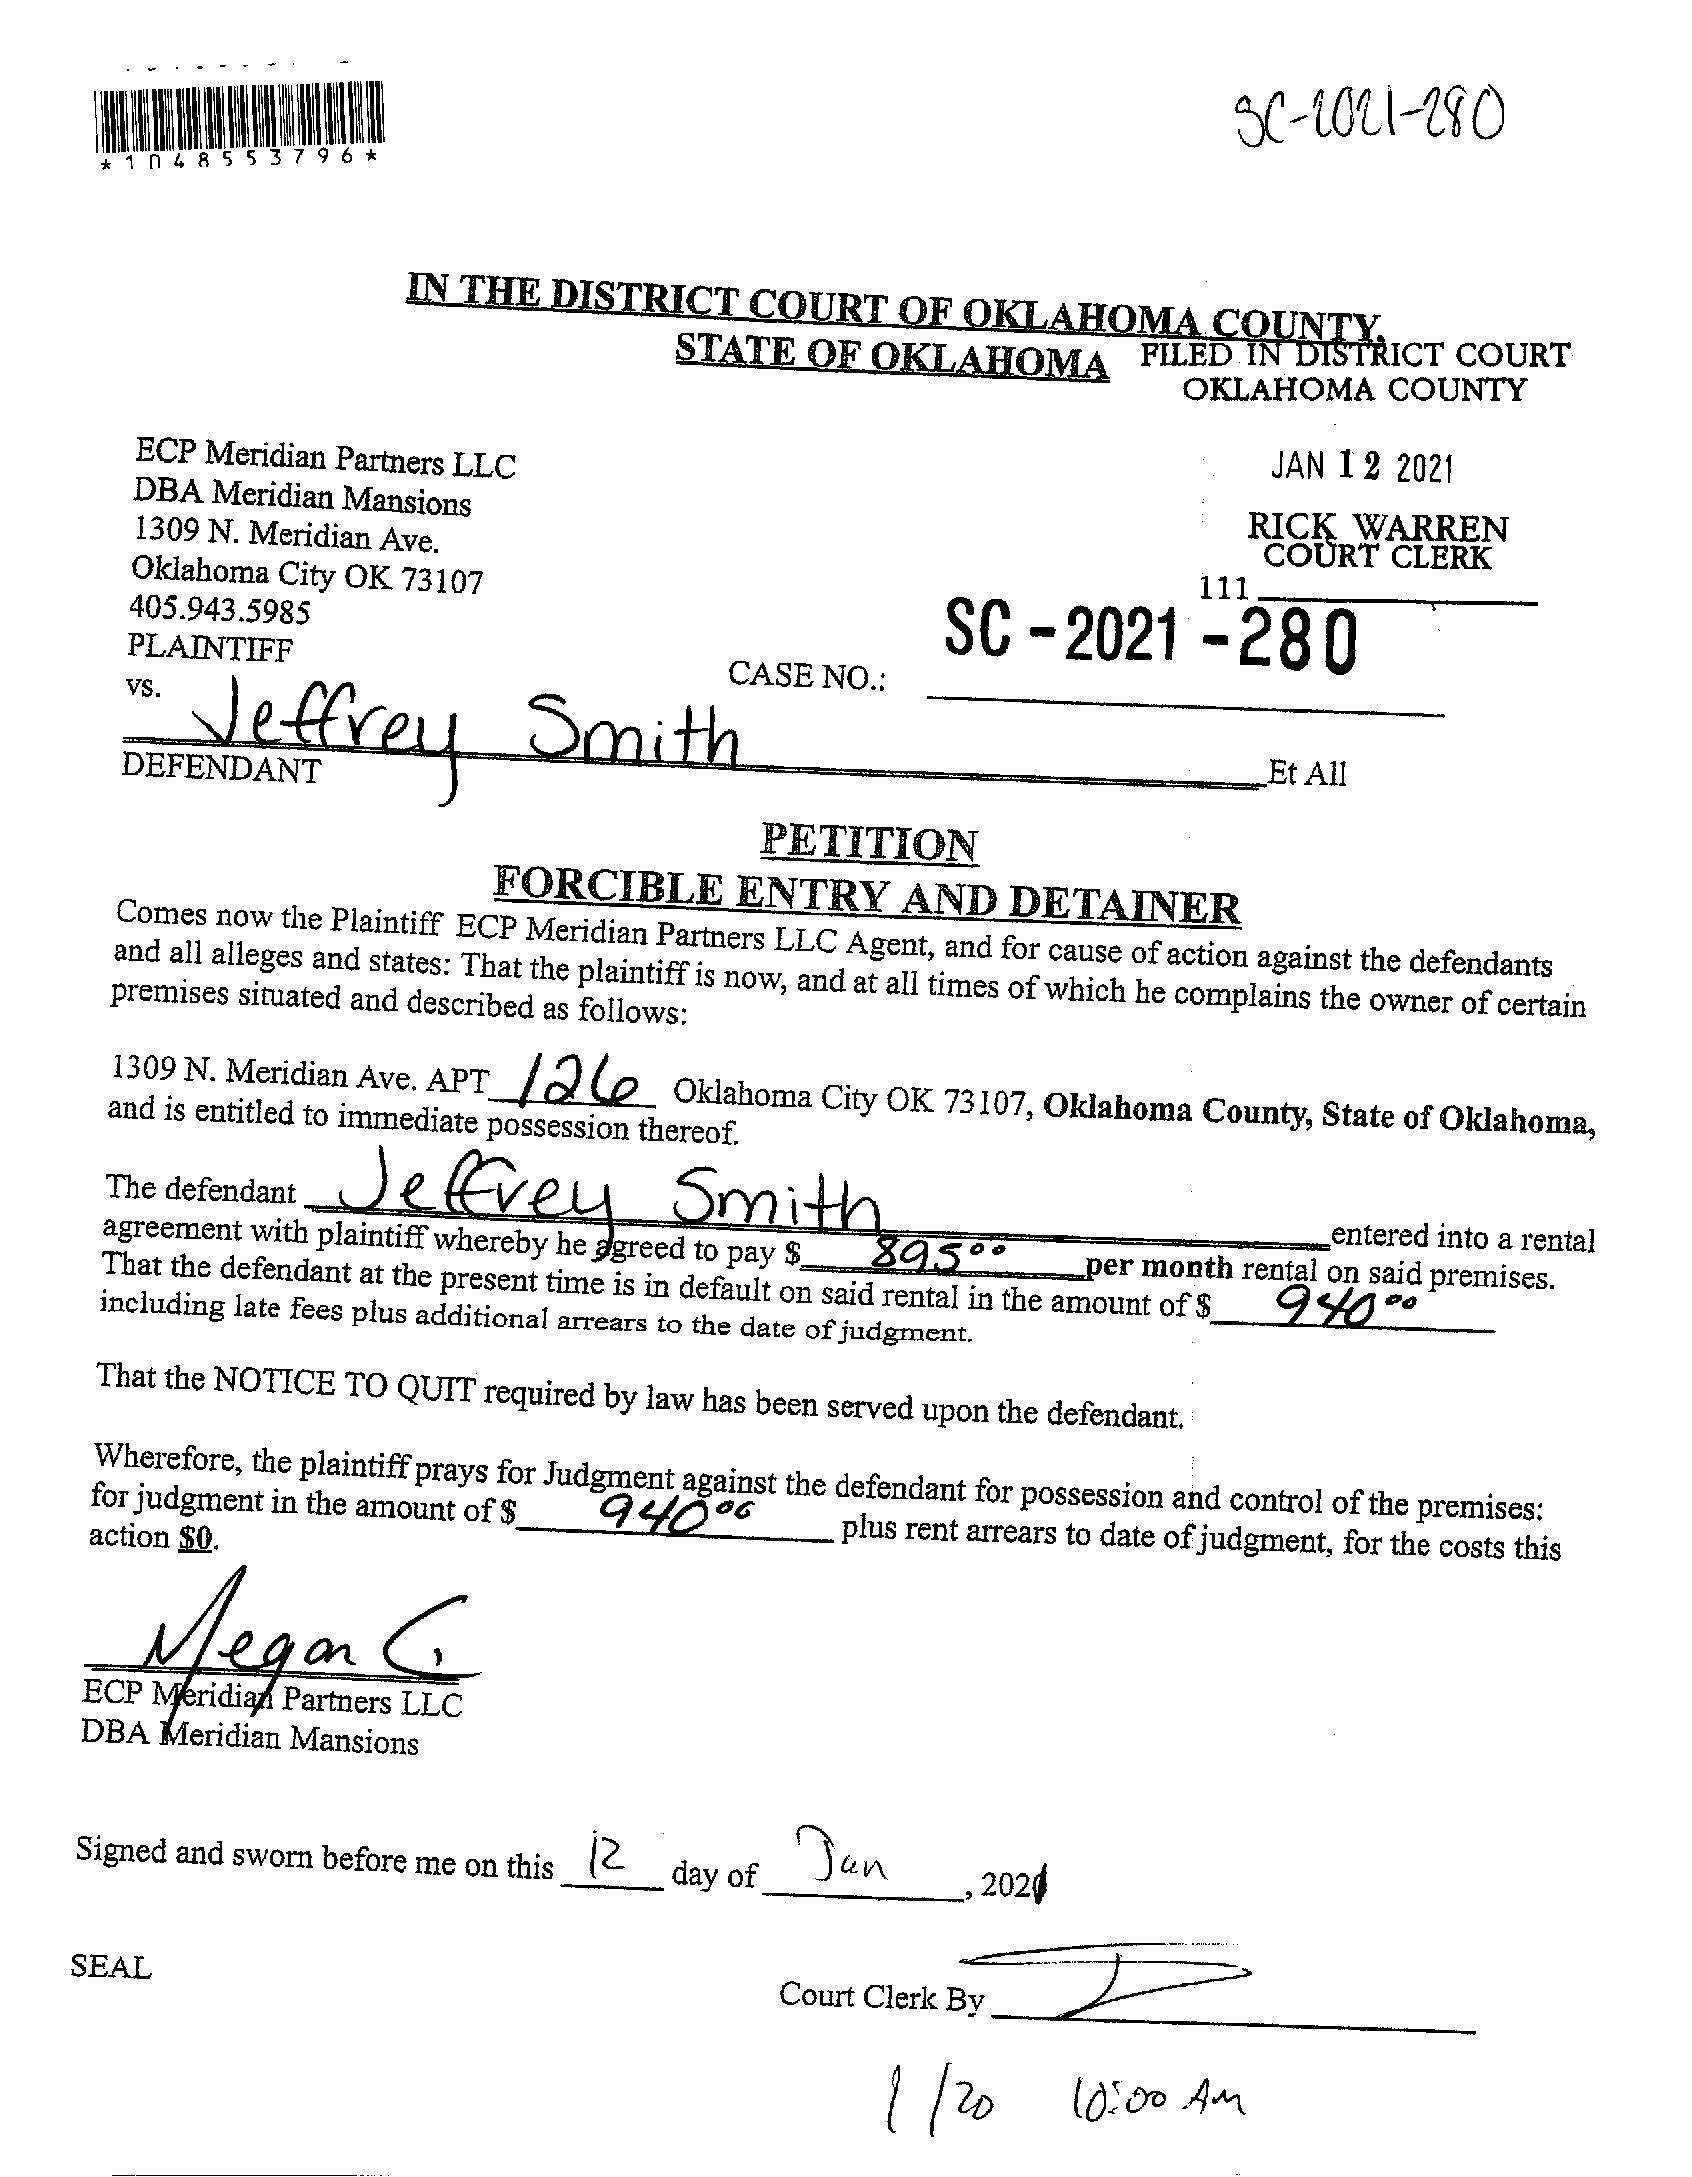 SC-2021-280
*1048553796*
IN THE DISTRICT COURT OF OKLAHOMA COUNTY,
STATE OF OKLAHOMA
FILED IN DISTRICT COURT
OKLAHOMA COUNTY
JAN 12 2021
RICK WARREN
COURT CLERK
111
ECP Meridian Partners LLC
DBA Meridian Mansions
1309 N. Meridian Ave.
Oklahoma City OK 73107
405.943.5985
PLAINTIFF
vs.
CASE NO.: SC-2021-280
Jeffrey Smith Et All
DEFENDANT
PETITION
FORCIBLE ENTRY AND DETAINER
Comes now the Plaintiff ECP Meridian Partners LLC Agent, and for cause of action against the defendants
and all alleges and states: That the plaintiff is now, and at all times of which he complains the owner of certain
premises situated and described as follows:
1309 N. Meridian Ave. APT 126 Oklahoma City OK 73107, Oklahoma County, State of Oklahoma,
and is entitled to immediate possession thereof.
The defendant Jeffrey Smith entered into a rental
agreement with plaintiff whereby he agreed to pay $ 895.00 per month rental on said premises.
That the defendant at the present time is in default on said rental in the amount of $ 940.00
including late fees plus additional arrears to the date of judgment.
That the NOTICE TO QUIT required by law has been served upon the defendant.
Wherefore, the plaintiff prays for Judgment against the defendant for possession and control of the premises:
for judgment in the amount of $ 940.00 plus rent arrears to date of judgment, for the costs this
action $0.
Megan C.
ECP Meridian Partners LLC
DBA Meridian Mansions
Signed and sworn before me on this 12 day of Jan, 2021
SEAL
Court Clerk By
1/20 10:00 AM